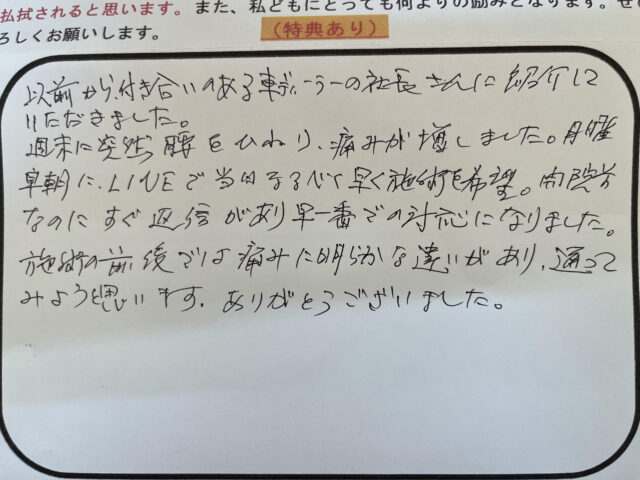 払拭されると思います。また、私どもにとっても何よりの励みとなります。ぜ
ろしくお願いします。 （特典あり）
以前から付き合いのある車ディーラーの社長さんに紹介して
いただきました。
週末に突然腰をひねり、痛みが増しました。月曜
早朝に、LINEで当日なるべく早く施術を希望。開院前
なのにすぐ返信があり早一番での対応になりました。
施術の前後では痛みに明らかな違いがあり、通って
みようと思います。ありがとうございました。